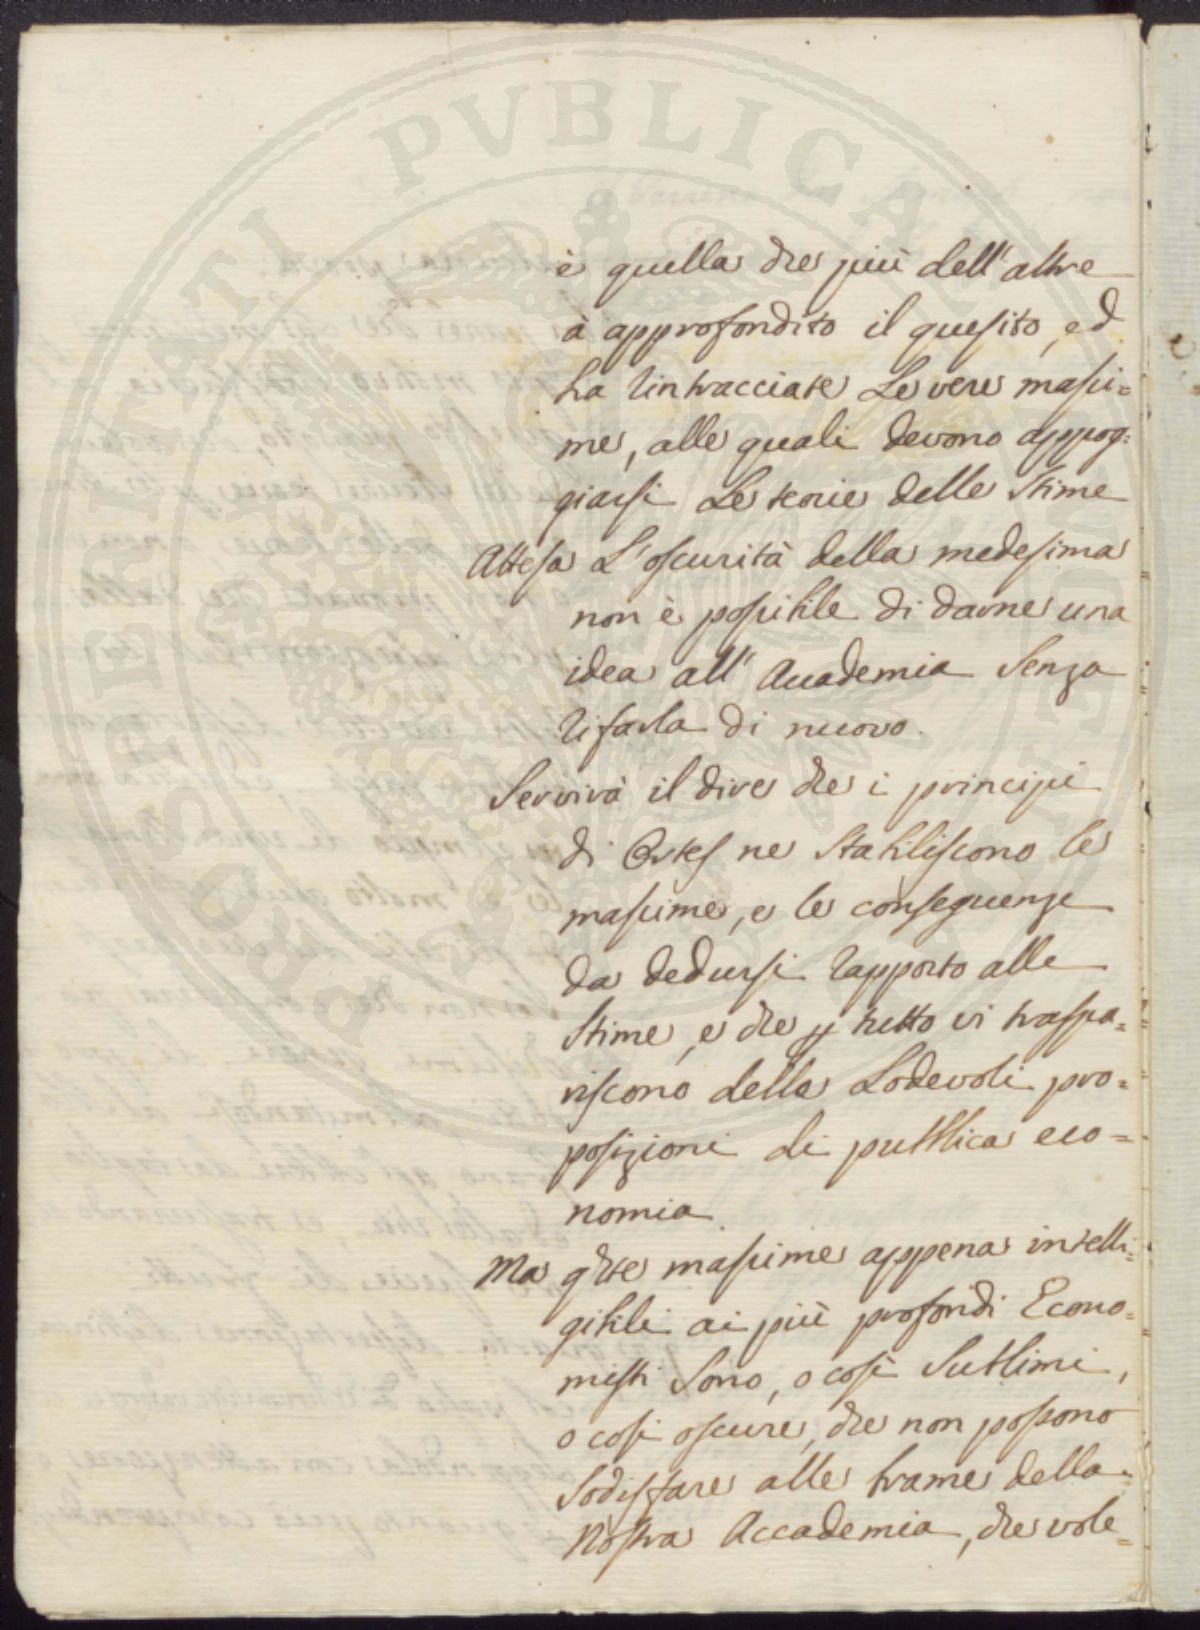 PROSPERITATI PUBLICAE AUGENDAE
è quella che più dell'altre
à approfondito il quesito, ed
ha rintracciate Le vere massi=
me, alle quali devono appog=
giarsi Le teorie delle Stime
Attesa L'oscurità della medesima
non è possibile di darne una
idea all' Accademia Senza
rifarla di nuovo.
Servirà il dire che i principi
di Ortes ne Stabiliscono le
massime, e le conseguenze
da dedursi rapporto alle
Stime, e che p tutto vi traspa=
riscono delle Lodevoli pro=
posizioni di pubblica eco=
nomia
Ma qste massime appena intelli=
gibili ai più profondi Econo=
misti Sono, o così Sublimi,
o così oscure, che non possono
Sodisfare alle brame della
Nostra Accademia, che vole=